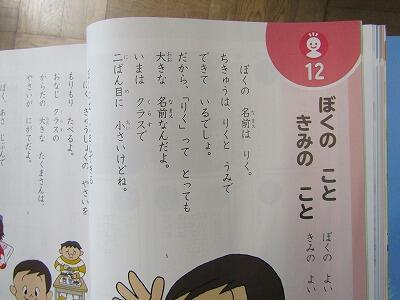 12
ぼくの こと
きみの こと
ぼくの よい
きみの よい
ぼくの 名前は りく。
ちきゅうは、りくと うみで
できて いるでしょ。
だから、「りく」って とっても
大きな 名前なんだよ。
いまは クラスで
二ばん目に 小さいけどね。
もりもり たべるよ。
おなじ クラスの
からだの 大きな たくまさんは、
やさいが にがてだよ。